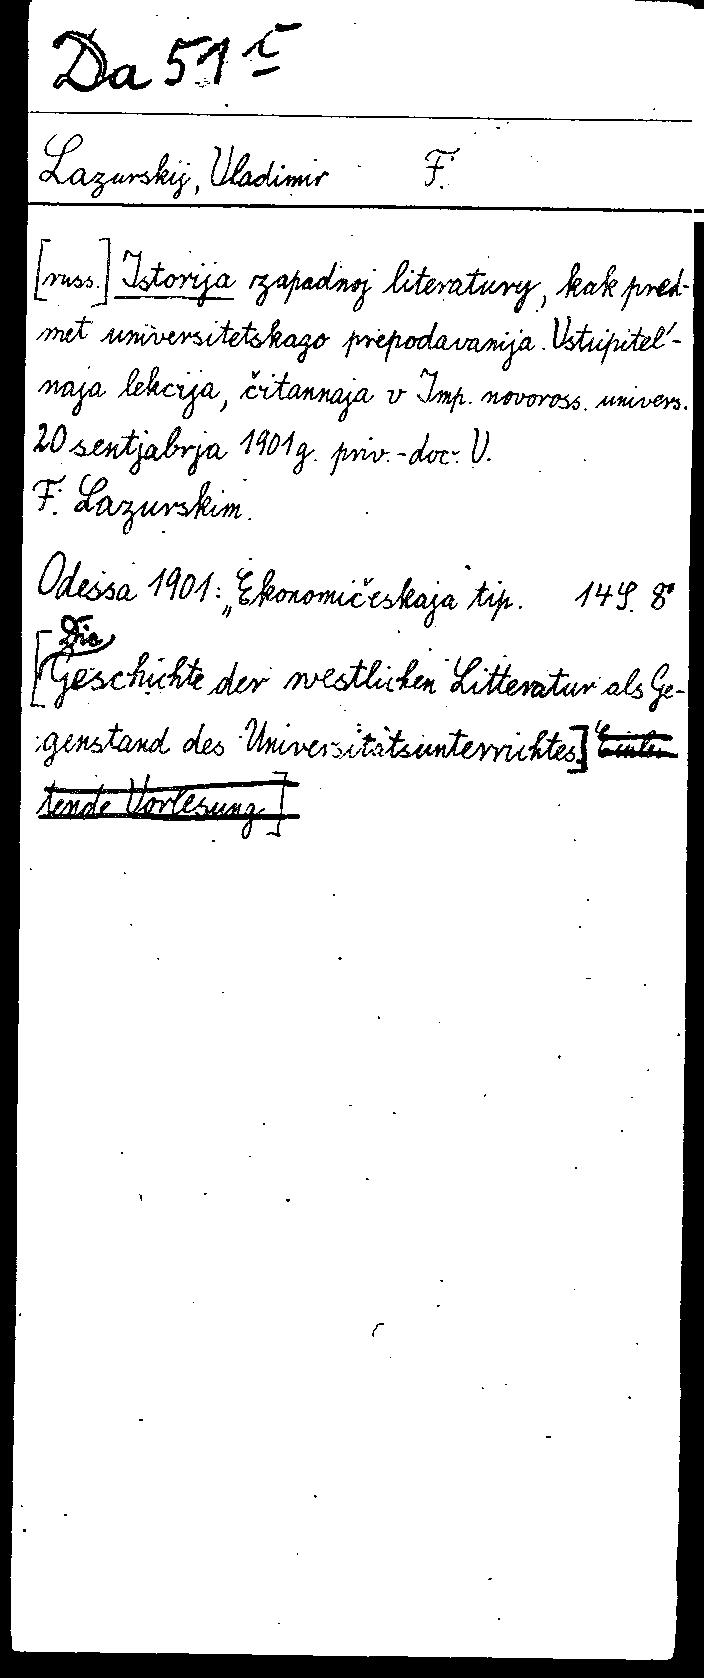 Da 51 i
Lazurskij, Vladimir F.
[russ.] Istorija zapadnoj literatury, kak pred-
met universitetskago prepodavanija. Vstupitel'-
naja lekcija, čitannaja v Imp. novoross. univers.
20 sentjabrja 1901 g. priv.-doc. V.
F. Lazurskim.
Odessa 1901: „Ekonomičeskaja" tip. 14 S. 8°
[Die
Geschichte der westlichen Litteratur als Ge-
genstand des Universitätsunterrichtes] Einlei-
tende Vorlesung]